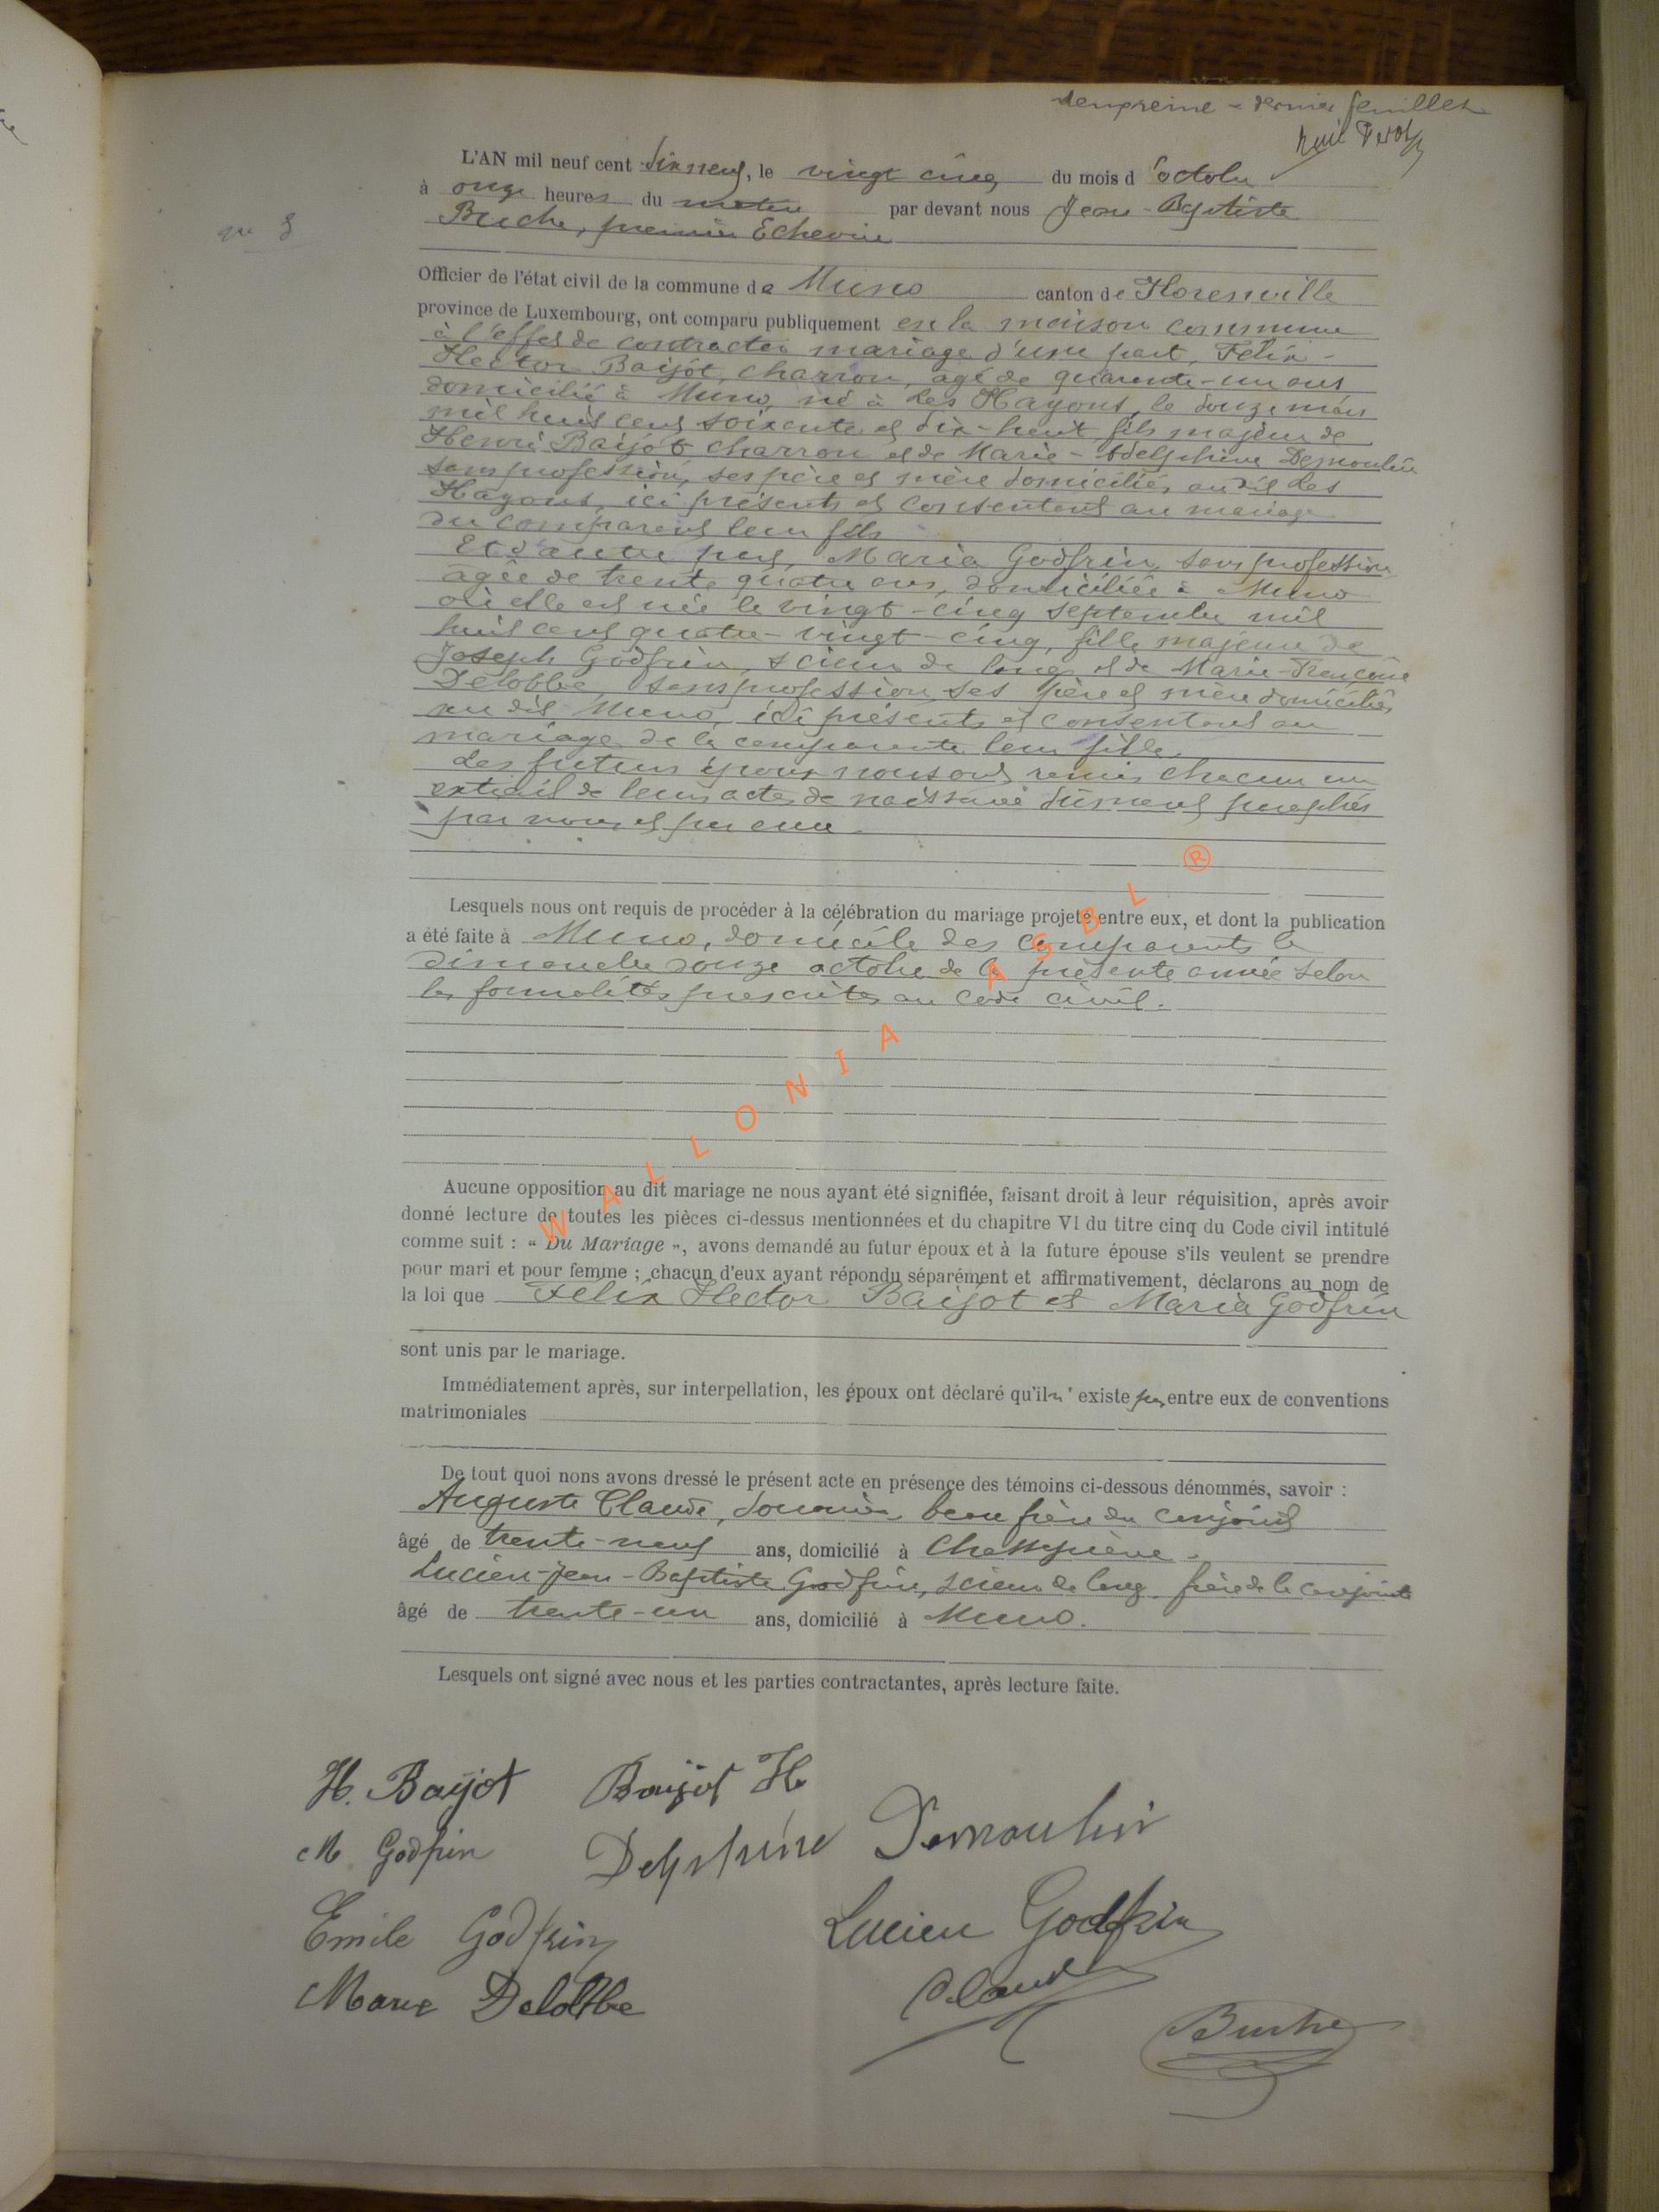 dernier feuillet
L'AN mil neuf cent dix neuf, le vingt cinq du mois d'octobre
à onze heures du matin par devant nous Jean-Baptiste
Buche, premier Echevin
n° 8
Officier de l'état civil de la commune de Muno canton de Florenville
province de Luxembourg, ont comparu publiquement en la maison commune
à l'effet de contracter mariage d'une part, Félix-
Hector Baijot, charron, âgé de quarante-un ans
domicilié à Muno, né à Les Hayons, le douze mars
mil huit cent soixante et dix-huit, fils majeur de
Henri Baijot charron et de Marie-Adelphine Demoulin
sans profession, ses père et mère domiciliés audit Les
Hayons, ici présents et consentant au mariage
du comparant leur fils
Et d'autre part, Maria Godfrin, sans profession
âgée de trente quatre ans, domiciliée à Muno
où elle est née le vingt-cinq septembre mil
huit cent quatre-vingt-cinq, fille majeure de
Joseph Godfrin, scieur de long et de Marie-Françoise
Delobbe, sans profession, ses père et mère domiciliés
au dit Muno, ici présents et consentant au
mariage de la comparante leur fille.
Les futurs époux nous ont remis chacun un
extrait de leurs actes de naissance dûment paraphés
par nous et par eux
Lesquels nous ont requis de procéder à la célébration du mariage projeté entre eux, et dont la publication
a été faite à Muno, domicile des comparants le
dimanche douze octobre de la présente année selon
les formalités prescrites au Code civil.
WALLONIA ASBL ®
Aucune opposition au dit mariage ne nous ayant été signifiée, faisant droit à leur réquisition, après avoir
donné lecture de toutes les pièces ci-dessus mentionnées et du chapitre VI du titre cinq du Code civil intitulé
comme suit : « Du Mariage », avons demandé au futur époux et à la future épouse s'ils veulent se prendre
pour mari et pour femme ; chacun d'eux ayant répondu séparément et affirmativement, déclarons au nom de
la loi que Félix Hector Baijot et Maria Godfrin
sont unis par le mariage.
Immédiatement après, sur interpellation, les époux ont déclaré qu'il n'existe pas entre eux de conventions
matrimoniales
De tout quoi nons avons dressé le présent acte en présence des témoins ci-dessous dénommés, savoir :
Auguste Claude, douanier, beau frère du conjoint
âgé de trente-neuf ans, domicilié à Chassepierre.
Lucien-Jean-Baptiste Godfrin, scieur de long, frère de la conjointe
âgé de trente-un ans, domicilié à Muno.
Lesquels ont signé avec nous et les parties contractantes, après lecture faite.
H. Baijot Baijot H
M Godfrin Delphine Demoulin
Emile Godfrin Lucien Godfrin
Marie Delobbe Claude
Buche